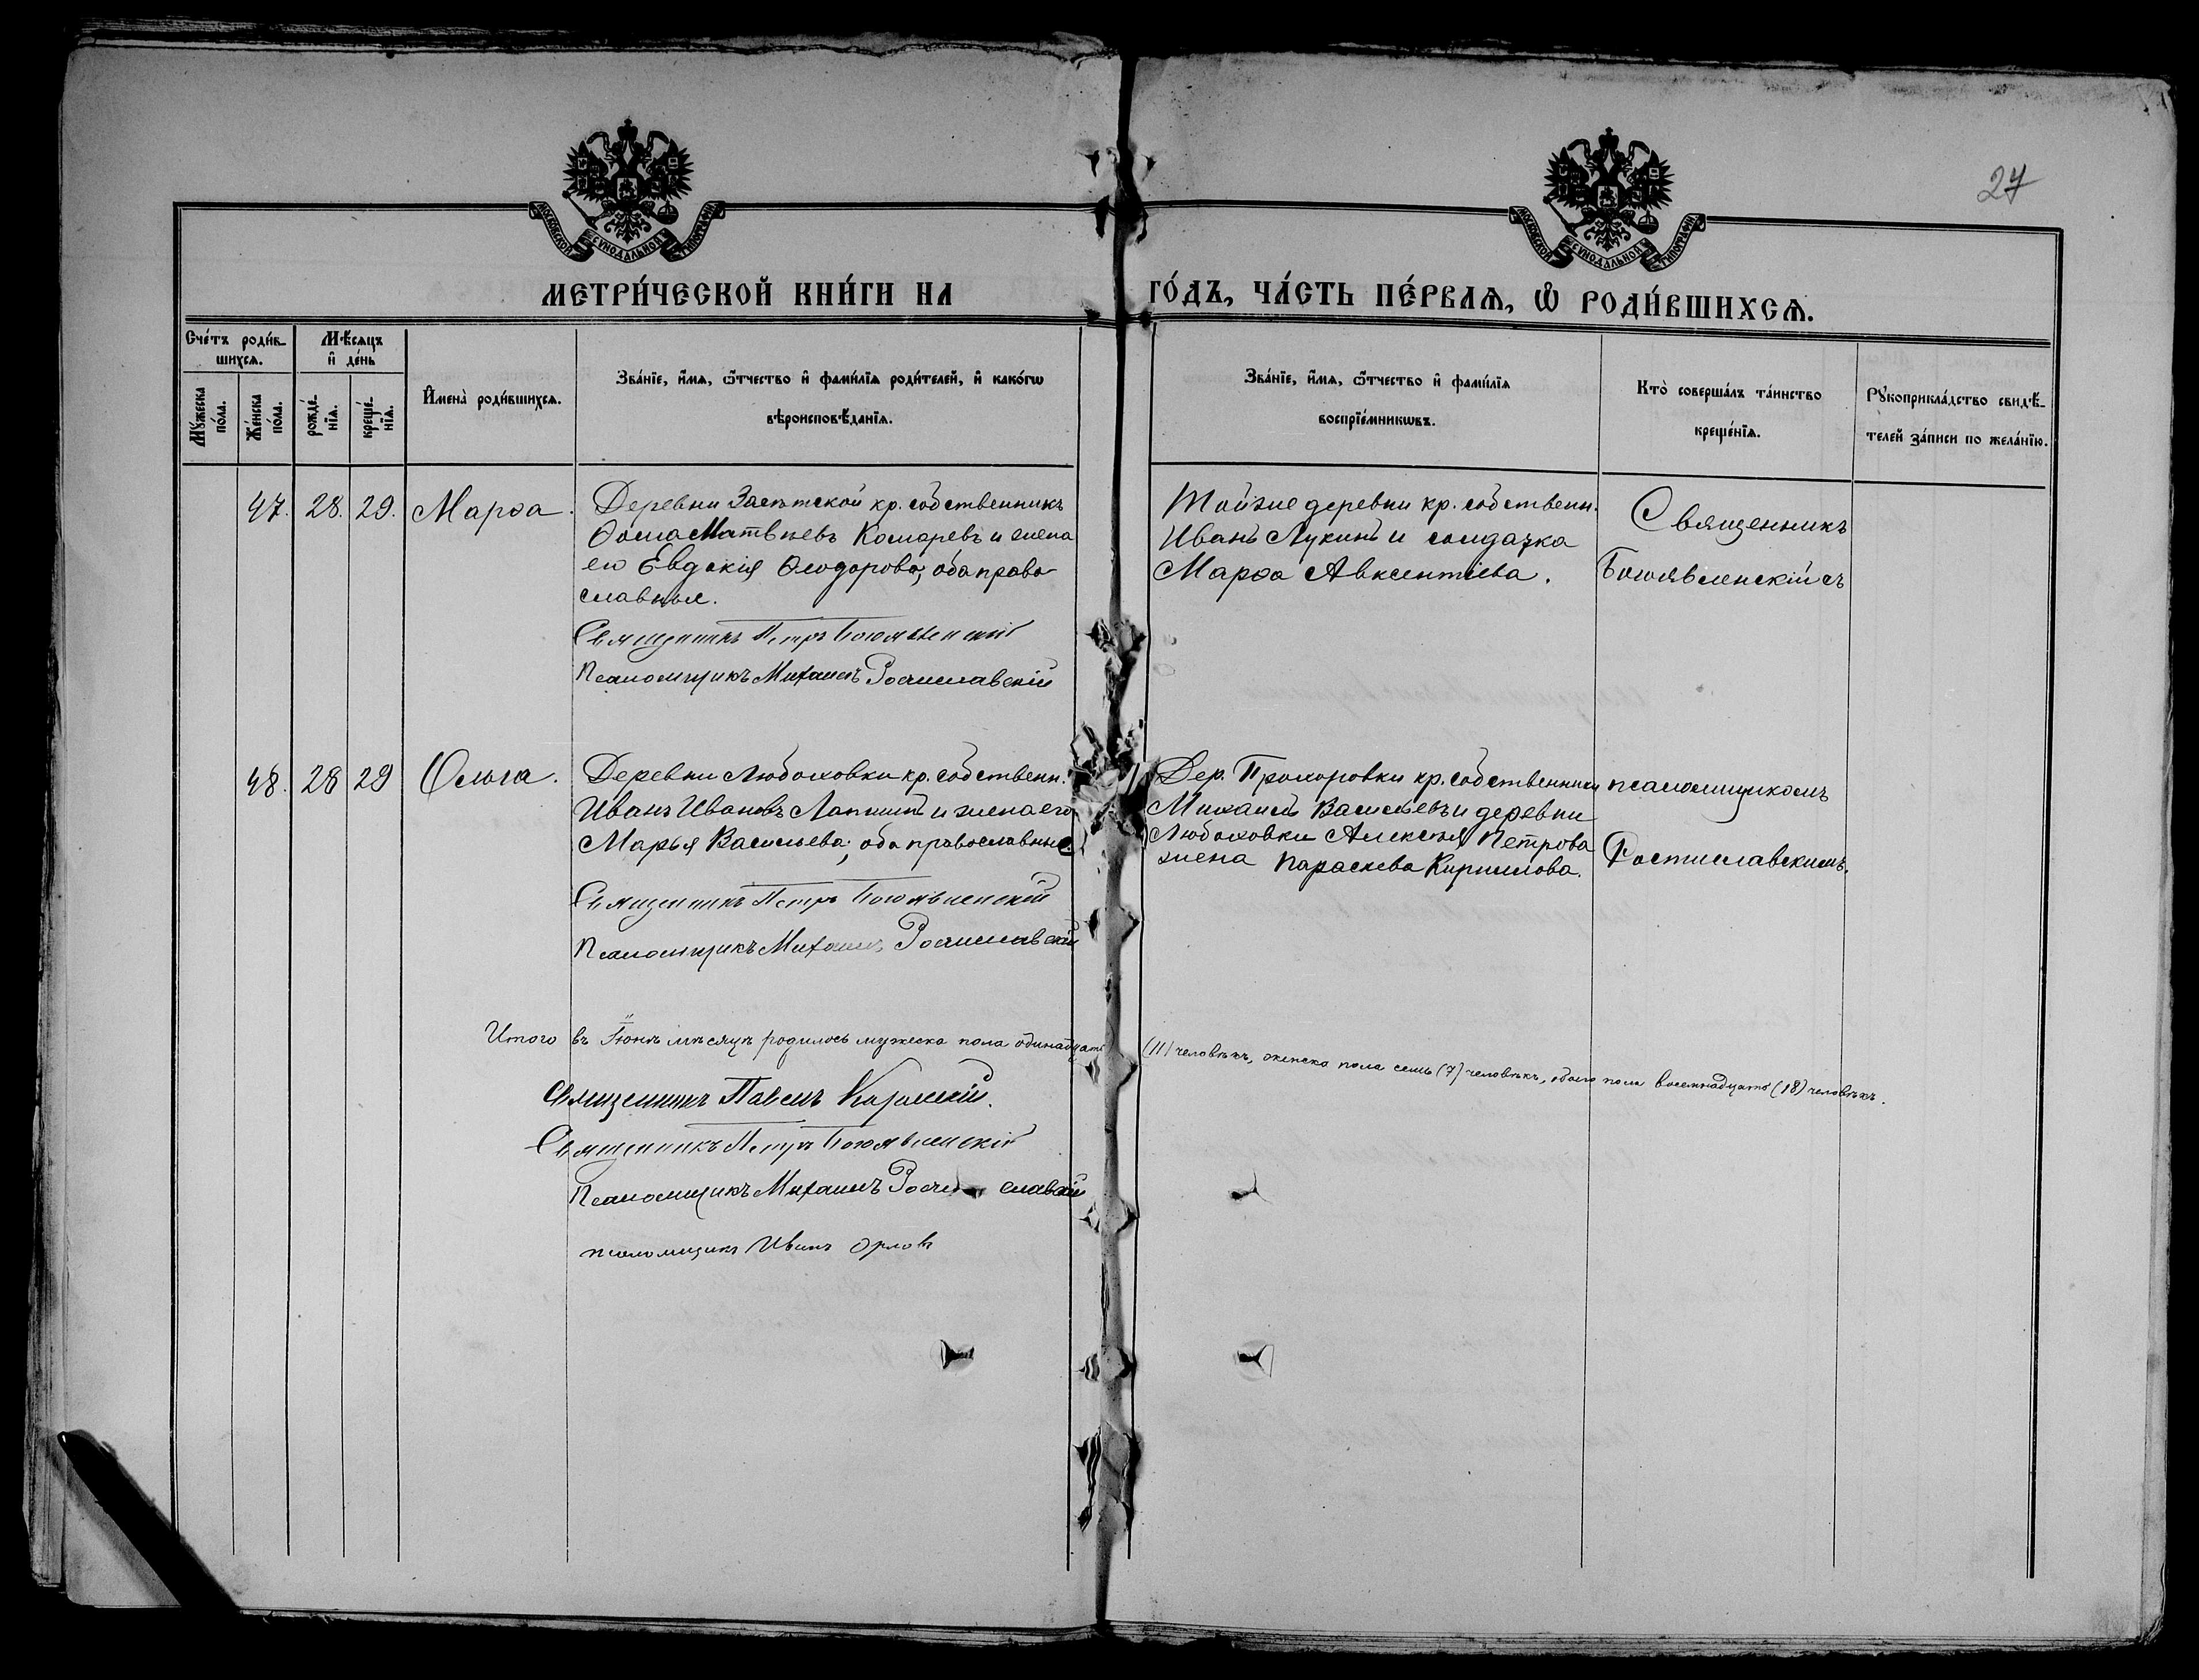 27
МОСКОВСКОЙ СУНОДАЛЬНОЙ ТИПОГРАФІИ
МОСКОВСКОЙ СУНОДАЛЬНОЙ ТИПОГРАФІИ
МЕТРИ́ЧЕСКОЙ КНИ́ГИ НА ГО́ДЪ, ЧА́СТЬ ПЕ́РВАѦ, Ѡ РОДИ́ВШИХСѦ.
Сче́тъ роди́в-
шихсѧ.
Мѣ́сяцъ
и де́нь
Мꙋ́жеска
по́ла.
Же́нска
по́ла.
рожде́-
нїѧ.
креще́-
нїѧ.
Имена̀ роди́вшихсѧ.
Зва́нїе, и́мѧ, ѻ́тчество и фами́лїѧ роди́телей, и како́гѡ
вѣроисповѣ́данїѧ.
Зва́нїе, и́мѧ, ѻ́тчество и фами́лїѧ
воспрїе́мникѡвъ.
Кто̀ соверша́лъ та́инство
креще́нїѧ.
Рꙋкоприкла́дство свидѣ́-
телей за́писи по жела́нїю.
47. 28. 29. Марѳа.
Деревни Засѣтской кр. собственникъ
Ѳома Матвѣевъ Комаревъ и жена
его Евдокія Ѳеодорова, оба право-
славные.
Священникъ Петръ Богоявленскій
Псаломщикъ Михаилъ Ростиславскій
Тойже деревни кр. собственн.
Иванъ Лукинъ и солдатка
Марѳа Авксентіева.
Священникъ
Богоявленскій съ
48. 28 29 Ольга.
Деревни Любоховки кр. собственн.
Иванъ Ивановъ Лапшинъ и жена его
Марья Васильева, оба православные.
Священникъ Петръ Богоявленскій
Псаломщикъ Михаилъ Ростиславскій
Дер. Прохоровки кр. собственникъ
Михаилъ Васильевъ и деревни
Любоховки Алексѣя Петрова
жена Параскева Кириллова.
псаломщикомъ
Ростиславскимъ.
Итого въ Іюнѣ мѣсяцѣ родилось мужеска пола одинадцать (11) человѣкъ, женска пола семь (7) человѣкъ, обоего пола восемнадцать (18) человѣкъ.
Священникъ Павелъ
Священникъ Петръ Богоявленскій
Псаломщикъ Михаилъ Ростиславскій
псаломщикъ Иванъ Орловъ